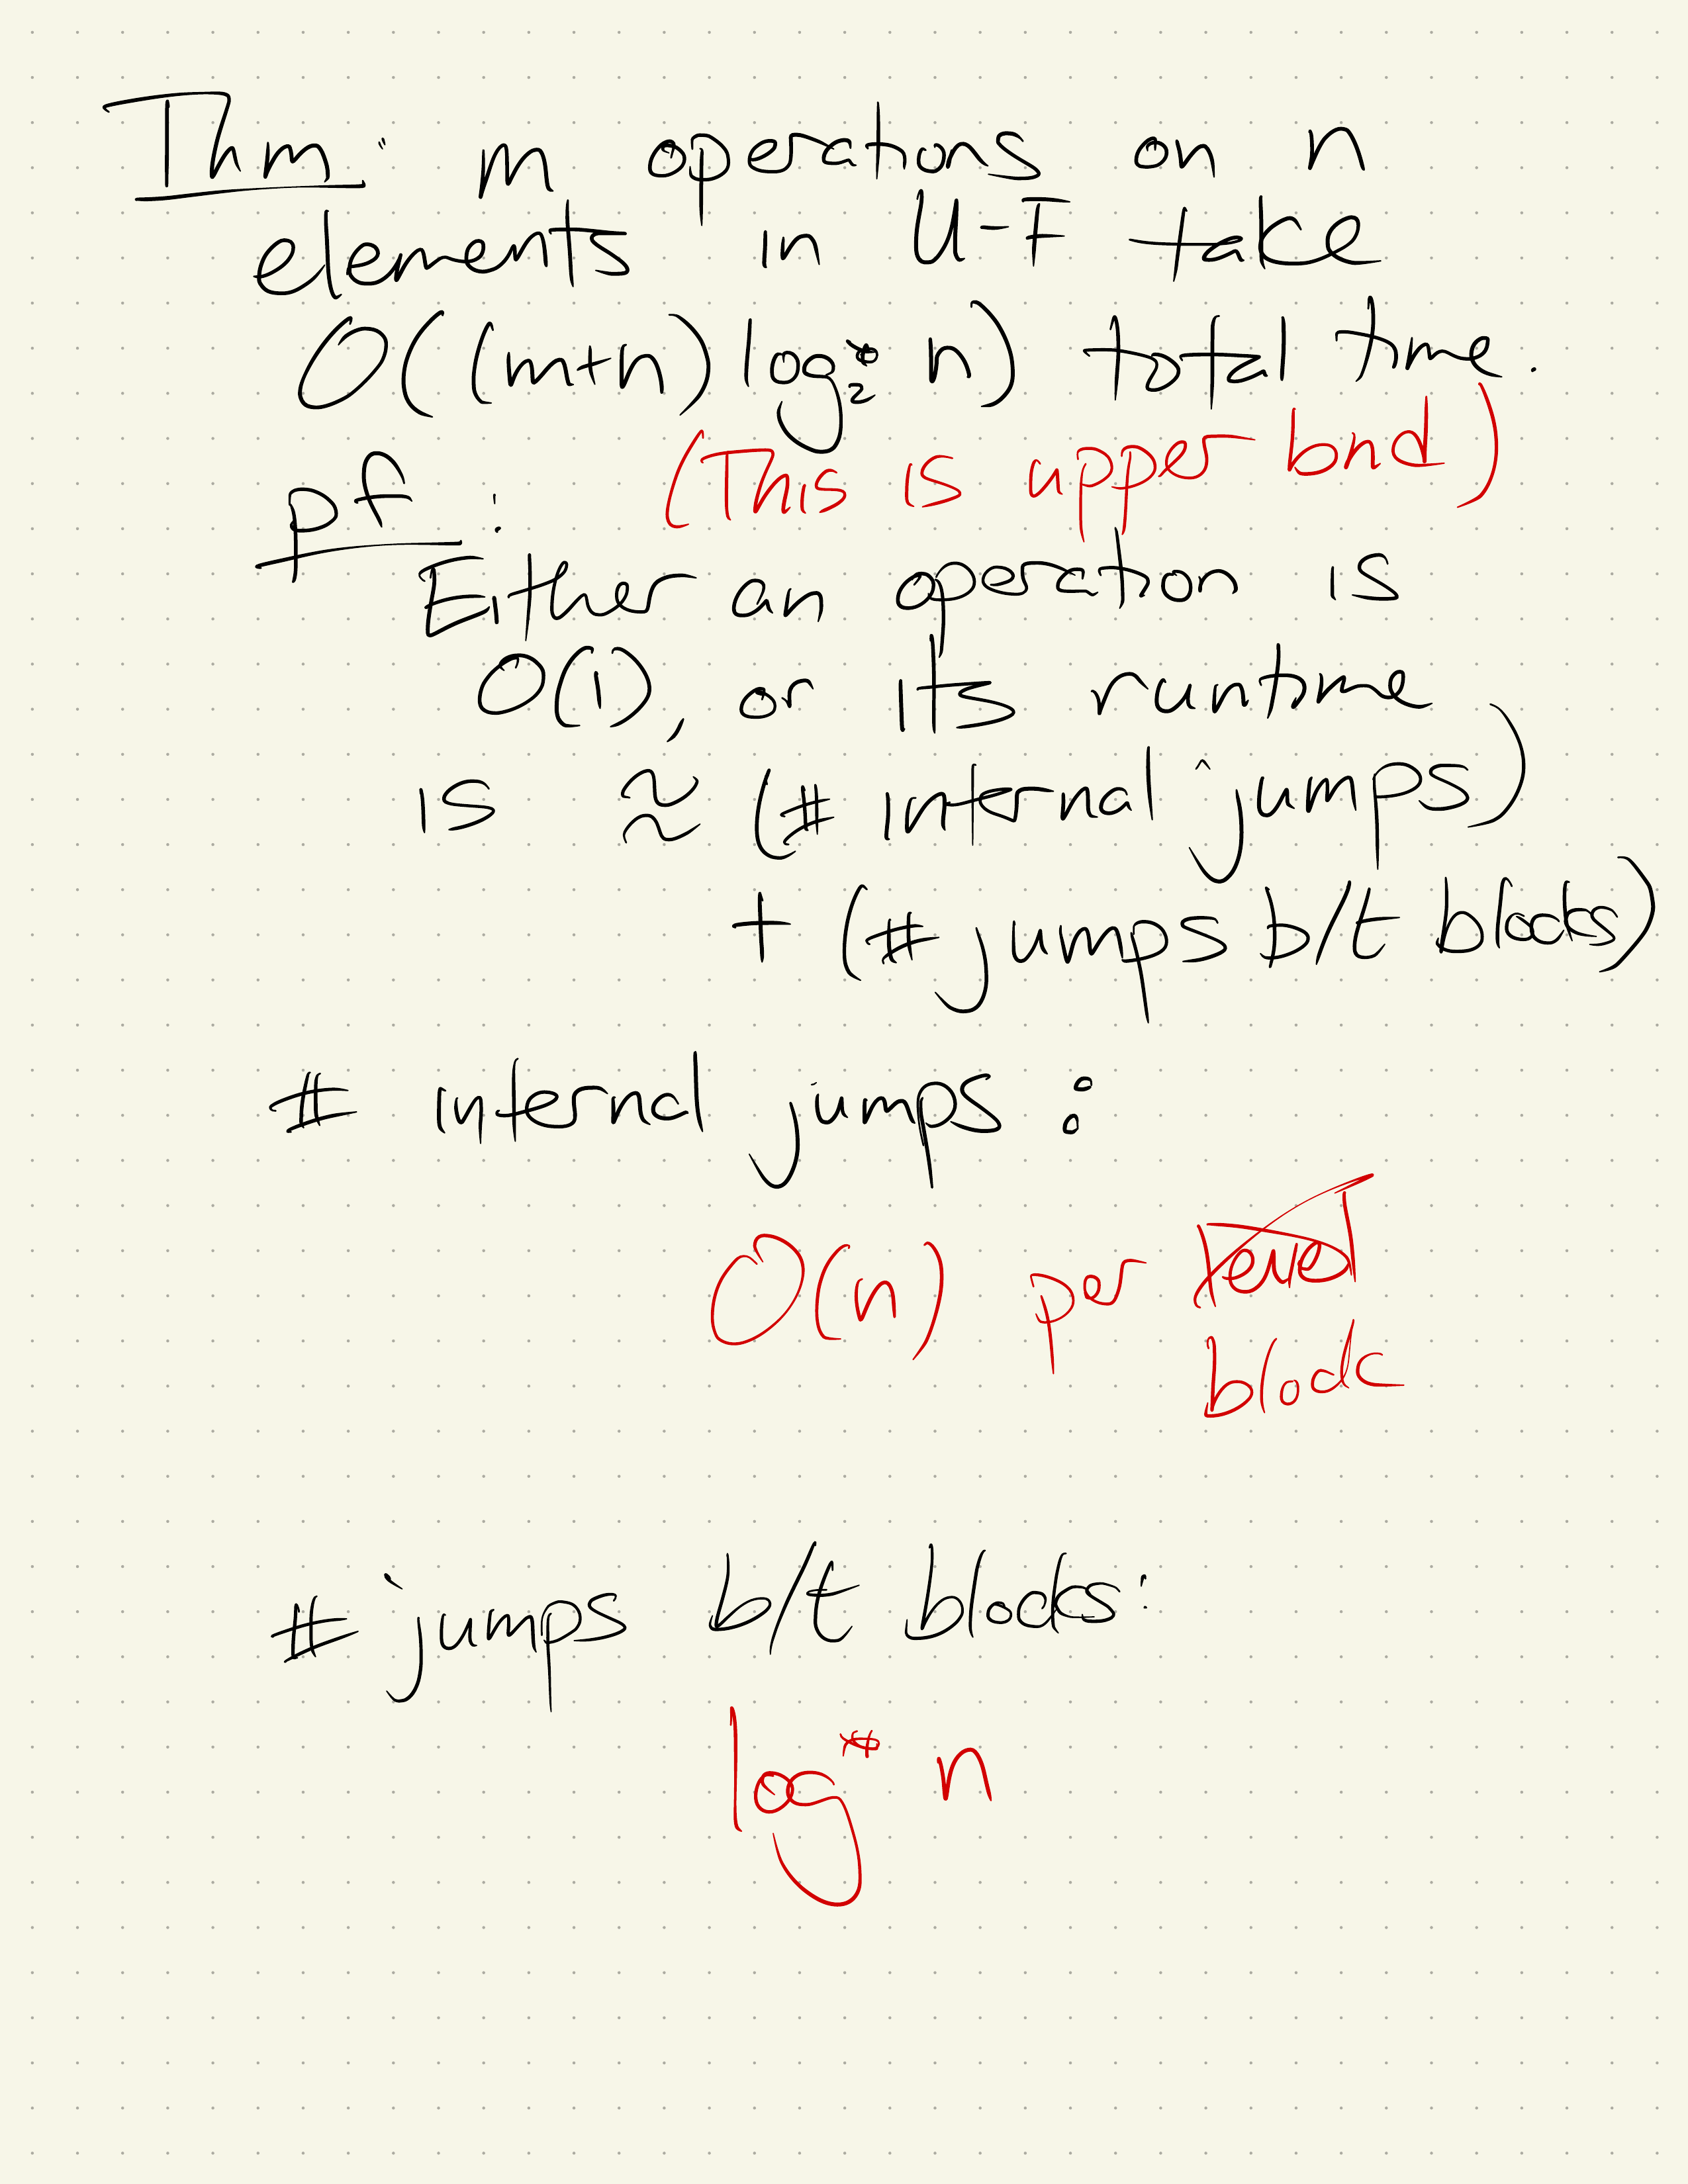 Thm: m operations on n
elements in U-F take
O((m+n) log₂* n) total time.
(This is upper bnd)
pf:
Either an operation is
O(1), or its runtime
is ≈ (# internal jumps)
+ (# jumps b/t blocks)
# internal jumps:
O(n) per level
block
# jumps b/t blocks:
log* n